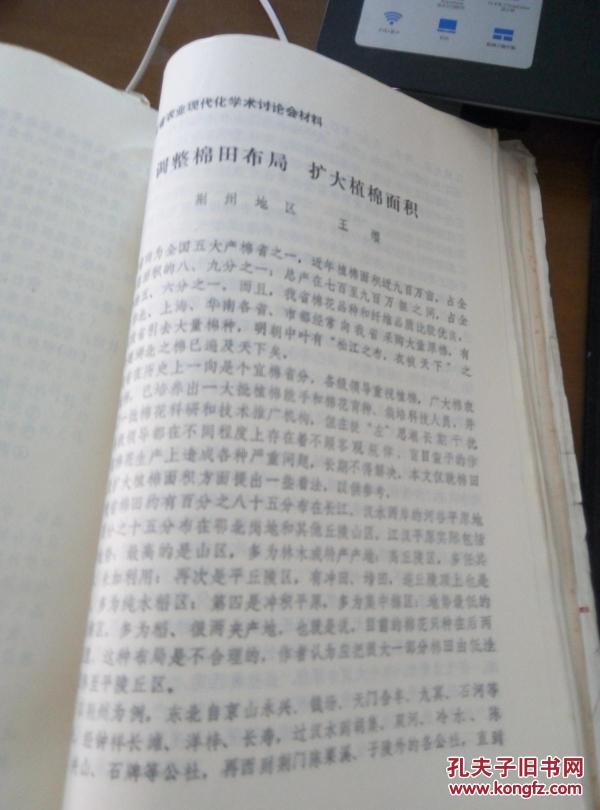 农业现代化学术讨论会材料
调整棉田布局 扩大植棉面积
荆州地区 王
为全国五大产棉省之一，近年植棉面积近九百万亩，占全
积的八、九分之一；总产在七百至九百万担之间，占全
五、六分之一，而且，我省棉花品种和纤维品质比较优良，
北、上海、华南各省、市都经常向我省采购大量原棉，有
省引去大量棉种，明朝中叶有“松江之布，衣被天下”之
湖北之棉已遍及天下矣。
在历史上一向是个宜棉省分，各级领导重视植棉，广大棉农
，已培养出一大批植棉能手和棉花育种、栽培科技人员，并
一批棉花科研和技术推广机构，但在极“左”思潮长期干扰
级领导都在不同程度上存在着不顾客观规律、盲目蛮干的作
棉花生产上造成各种严重问题，长期不得解决，本文仅就棉田
扩大植棉面积方面提出一些看法，以供参考。
省棉田约有百分之八十五分布在长江、汉水两岸的河谷平原地
分之十五分布在鄂北岗地和其他丘陵山区，江汉平原实际包括
势，最高的是山区，多为林木或特产产地；高丘陵区，多任其
未加利用；再次是平丘陵区，有冲田、塝田，连丘陵顶上也是
，多为纯水稻区；第四是冲积平原，多为集中棉区；地势最低的
区，多为稻、俶两夹产地，也就是说，目前的棉花只种在后两
，这种布局是不合理的，作者认为应把很大一部分棉田由低洼
移至平陵丘区。
荆州为例，东北自京山永兴、钱场、天门合丰、九真、石河等
经钟祥长滩、洋梓、长寿，过汉水到胡集、双河、冷水、陈
山、石牌等公社，再西到荆门陈集溪、子陵等的各公社，直到
孔夫子旧书网
www.kongfz.com